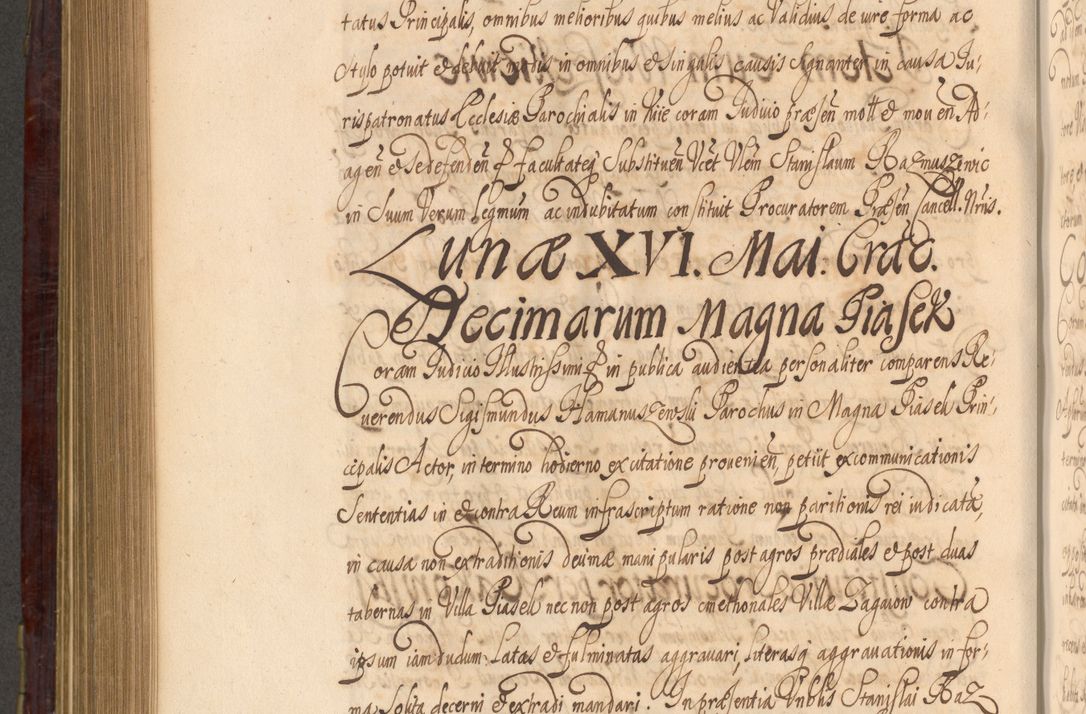 tatus Principalis, omnibus melioribus quibus melius ac Validius de iure forma ac
stylo potuit et debuit modis in omnibus et singulis causis signanter in causa Iu-
rispatronatus Ecclesiæ Parochialis in coram Iudicio præsen̄ mott et mouen̄ Ad-
agen̄ et se defenden̄ facultateq Substituen̄ Stanislaum Razmuszewic
in Suum Verum legmum ac indubitatum constituit Procuratorem Præsen̄ Cancell. Nris.
Lunæ XVI. Mai. Crac.
Decimarum Magna Piasek
Coram Iudicio Illustrissimi in publica audientia personaliter comparens Re-
uerendus Sigismundus Hamanuszewski Parochus in Magna Piasek Prin-
cipalis Actor, in termino hodierno ex citatione prouenien̄, petiit excommunicationis
Sententias in et contra Reum infrascriptum ratione non paritionis rei iudicatæ,
in causa non extraditionis decimæ manipularis post agros prædiales et post duas
tabernas in Villa Piasek nec non post agros cmethonales Villæ Zagaiow contra
ipsum iam dudum latas et fulminatas aggrauari, literasq aggrauationis in for-
ma solita decerni et extradi mandari. In præsentia Stanislai Raz-